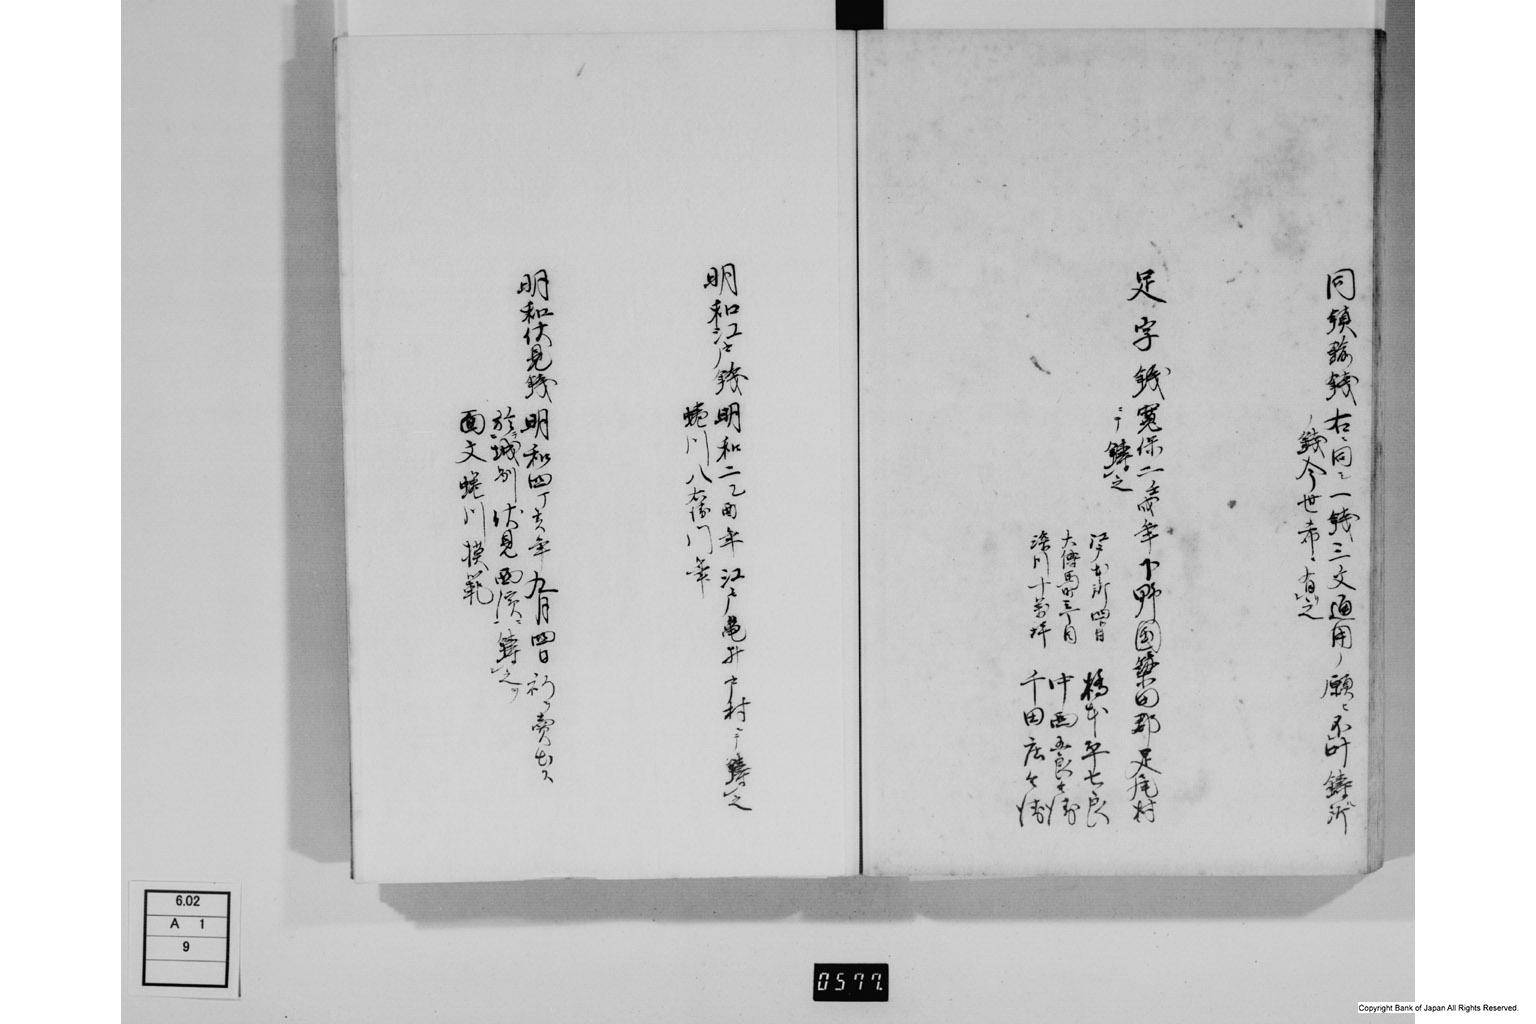 同鎮鍮銭 右ニ同シ一銭三文通用ノ願ニ不叶鋳所
ノ銭今世希ニ有之
足字銭 寛保二壬戌年下野国簗田郡足尾村
ニテ鋳之
江戸本所四丁目 橋本平七良
大傳馬町三丁目 中西五良兵衛
深川十万坪 千田庄兵衛
明和江戸銭 明和二乙酉年江戸亀井戸村ニテ鋳之
蜷川八右衛門筆
明和伏見銭 明和四丁亥年九月四日初テ賣出ス
於城州伏見西濱ニ鋳之
面文蜷川模範
6.02
A 1
9
0577.
Copyright Bank of Japan All Rights Reserved.